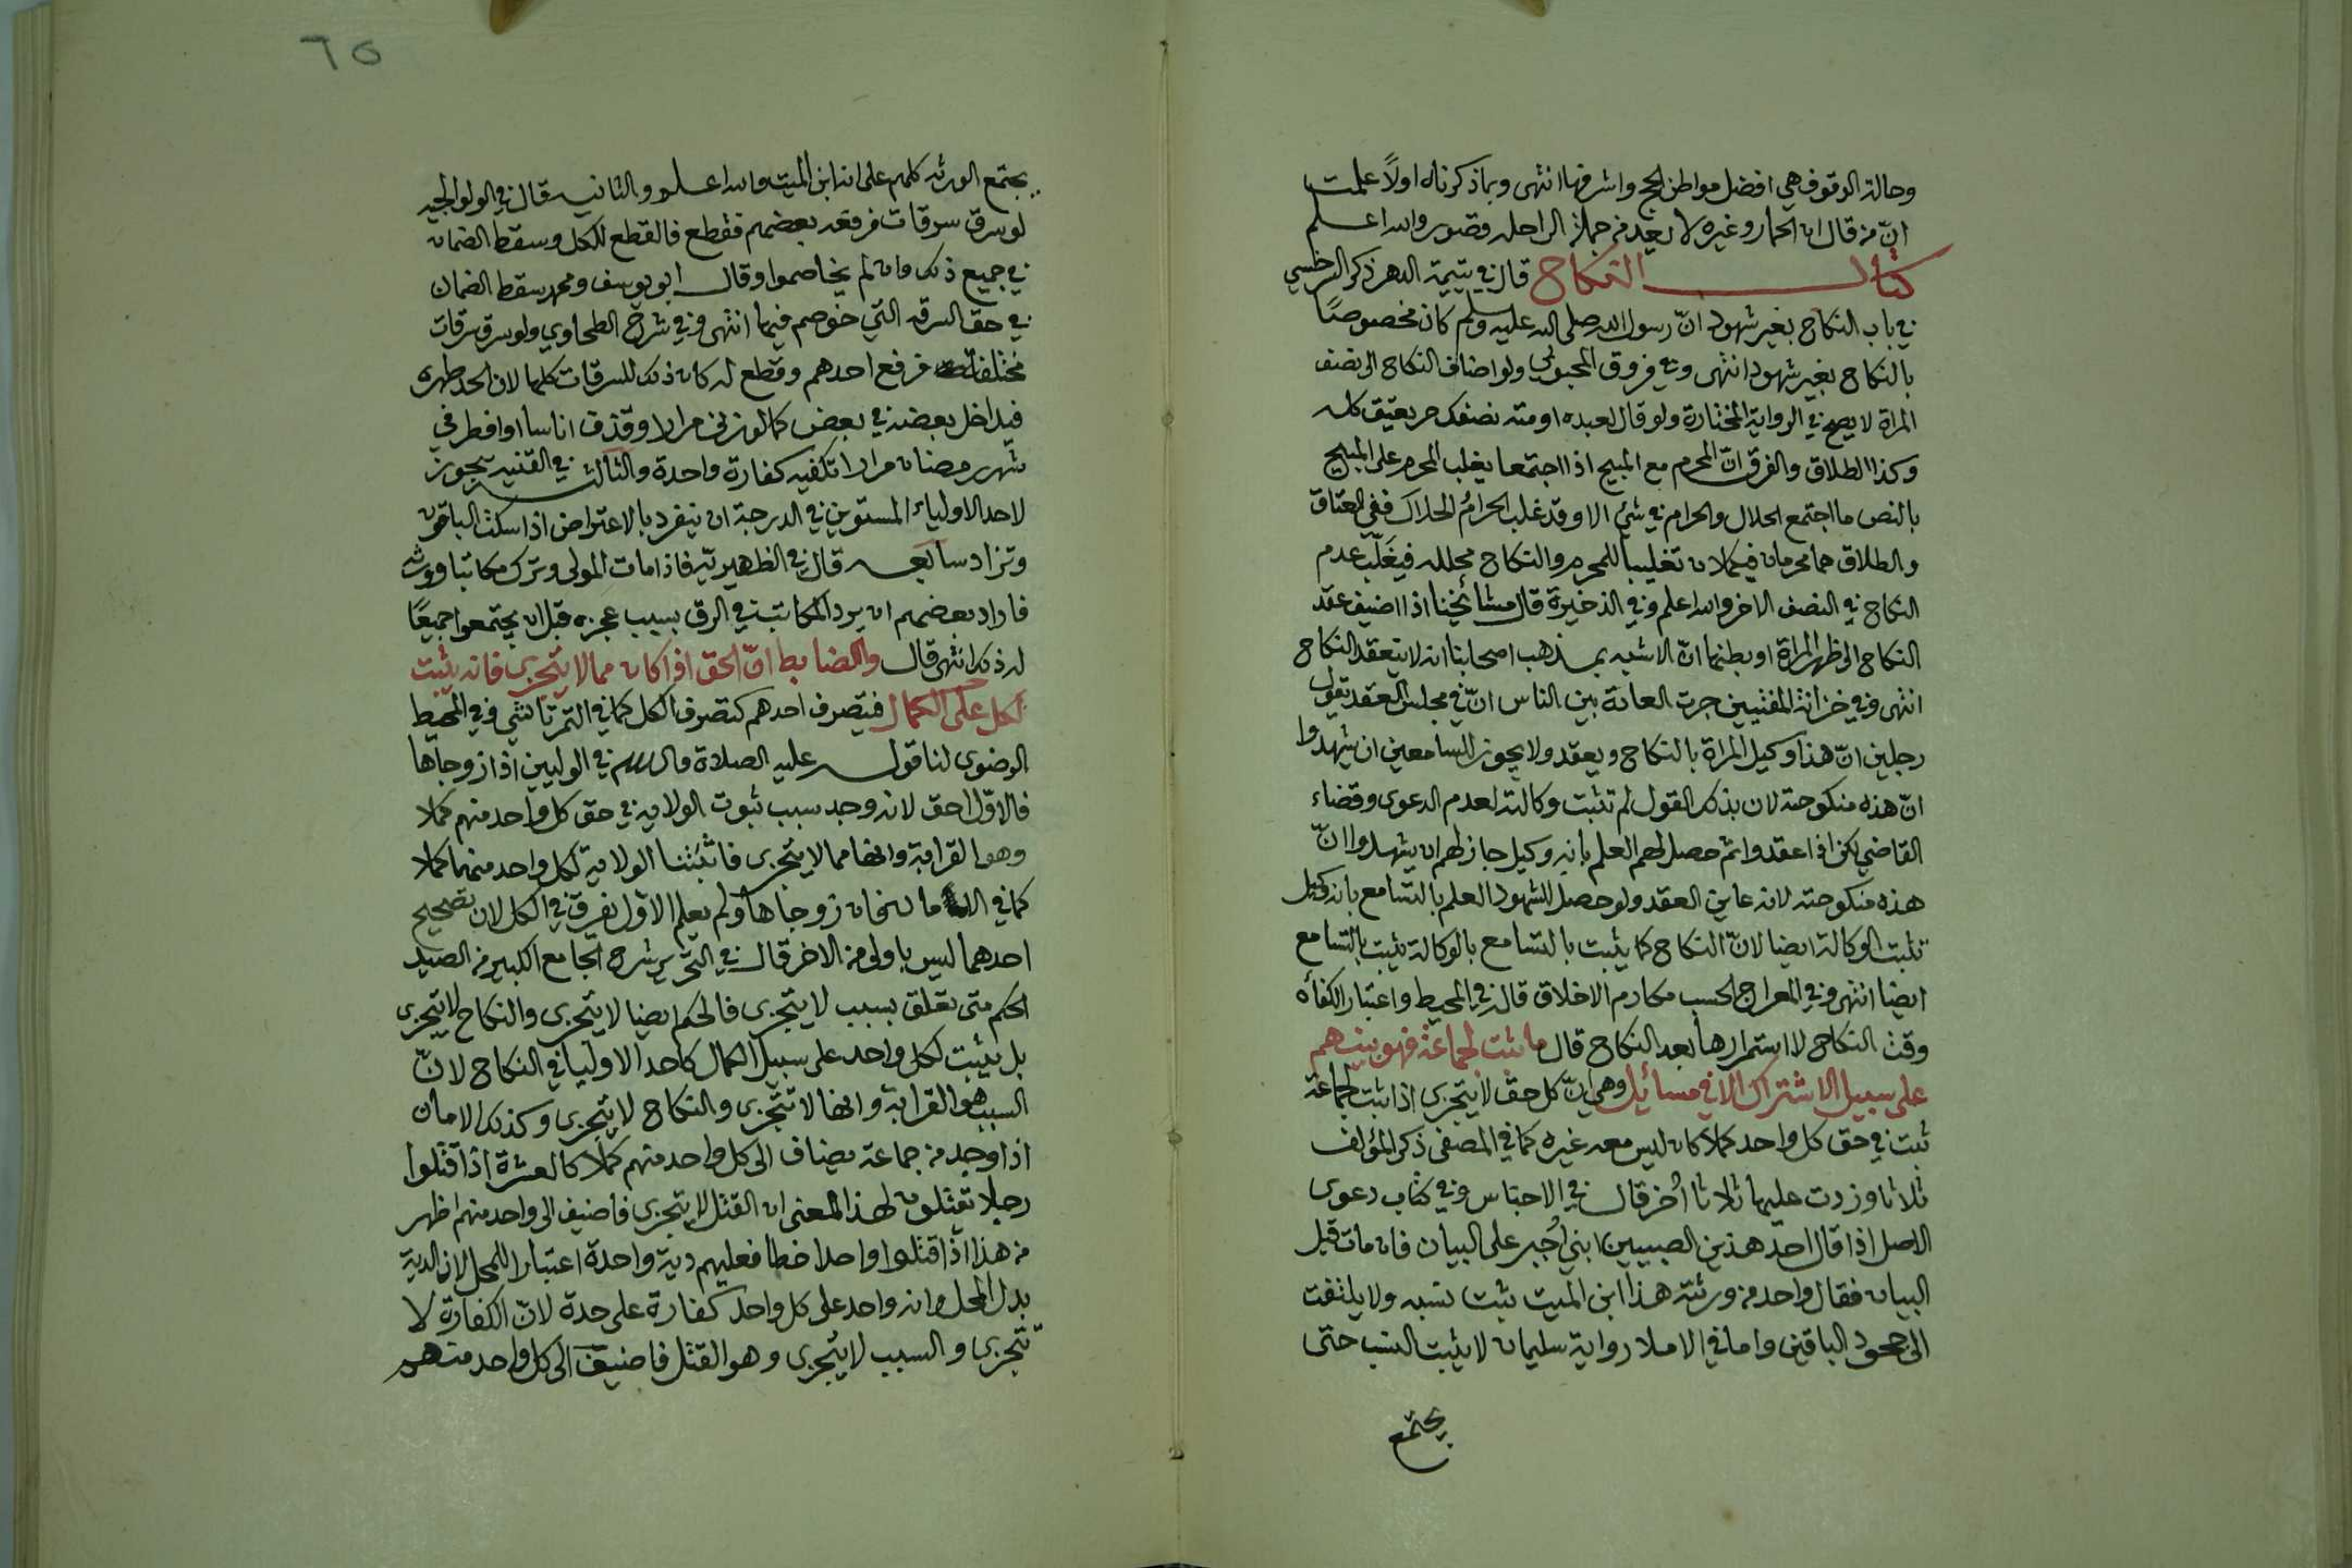 وحالة الوقوف هي افضل مواطن الحج واشرفها انتهى وبماذكرناه اولاً علمت
انّ من قال ان الحمار وغيره لا يعد من جملة الراحله قصور والله اعلم
كتاب النكاح قال في يتيمة الدهر ذكر السرخسي
في باب النكاح بغير شهود انّ رسول الله صلى الله عليه وسلم كان مخصوصًا
بالنكاح بغير شهود انتهى وفي فروق المحبوبي ولو اضاف النكاح الى نصف
المراة لا يصح في الرواية المختارة ولو قال لعبده او امته نصفك حر يعتق كله
وكذا الطلاق والفرق انّ المحرم مع المبيح اذا اجتمعا يغلب المحرم على المبيح
بالنص ما اجتمع الحلال والحرام في شئ الا وقد غلب الحرامُ الحلال ففي العتاق
والطلاق هما محرمان فيكملان تغليبا للمحرم والنكاح محلله فيغَلّب عدم
النكاح في النصف الاخر والله اعلم وفي الذخيرة قال مشائخنا اذا اضيف عقد
النكاح الى ظهر المراة او بطنها انّ الاشبه بمذهب اصحابنا انه لا ينعقد النكاح
انتهى وفي خزانة المفتيين جرت العادة بين الناس انّ في مجلس العقد يقول
رجلين انّ هذا وكيل المراة بالنكاح ويعقد ولا يجوز للسامعين ان يشهدوا
انّ هذه منكوحته لان بذلك القول لم تثبت وكالته لعدم الدعوى وقضاء
القاضي لكن اذا عقد وانتم حصل لهم العلم بانه وكيل جاز لهم ان يشهدوا انّ
هذه منكوحته لانه عاين العقد ولو حصل للشهود العلم بالتسامع بانه وكيل
تثبت الوكالة ايضا لانّ النكاح كما يثبت بالتسامع بالوكالة يثبت بالتسامع
ايضا انتهى وفي المعراج الحسب مكارم الاخلاق قال في المحيط واعتبار الكفأه
وقت النكاح لا استمرارها بعد النكاح قال ما ثبت لجماعة فهو بينهم
على سبيل الاشتراك الا في مسائل وهي انّ كل حق لا يتجزى اذا ثبت لجماعة
ثبت في حق كل واحد كملا كان ليس معه غيره كما في المصفى ذكر المؤلف
ثلاثا وزدت عليها ثلاثا اُخر قال في الاجناس وفي كتاب دعوى
الاصل اذا قال احد هذين الصبيين ابني اُجبر على البيان فان مات قبل
البيان فقال واحد من ورثته هذا ابن الميت يثبت نسبه ولا يلتفت
الى جحود الباقين واما في الاملا رواية سليمان لا يثبت النسب حتى
يجتمع
٦٥
يجتمع الورثه كلهم على انه ابن الميت والله اعلم والثانيه قال في الولوالجيه
لو سرق سرقات فرفعه بعضهم فقطع فالقطع للكل وسقط الضمان
في جميع ذلك وان لم يخاصموا وقال ابو يوسف ومحمد سقط الضمان
في حق السرقه التي خوصم فيها انتهى وفي شرح الطحاوي ولو سرق سرقات
مختلفات فرفع احدهم وقطع له كان ذلك للسرقات كلها لان الحد طهره
فيداخل بعضه في بعض كما لو زنى مرارا وقذف اناسا او افطر في
شهر رمضان مرارا تكفيه كفارة واحدة والثالث في القنيه يجوز
لاحد الاولياء المستويين في الدرجة ان ينفرد بالاعتراض اذا سكت الباقون
وتزاد سابعه قال في الظهيريّه فاذا مات المولى وترك مكاتبا وورثه
فاراد بعضهم ان يرد المكاتب في الرق بسبب عجزه قبل ان يجتمعوا جميعًا
له ذلك انتهى قال والضابط انّ الحق اذا كان مما لا يتجزى فانه يثبت
لكل على الكمال فيتصرف احدهم كتصرف الكل كما في التمرتاشي وفي المحيط
الرضوى لنا قوله عليه الصلاة والسلام في الوليين اذا زوجاها
فالاوّل احق لانه وجد سبب ثبوت الولايه في حق كل واحد منهم كملا
وهو القرابة وانها مما لا يتجزى فاثبتنا الولاية لكل واحد منهما كملا
كما في الامان فان زوجاها ولم يعلم الاوّل يفرق في الكل لان تصحيح
احدهما ليس باولى من الاخر قال في التحرير شرح الجامع الكبير من الصيد
الحكم متى تعلق بسبب لا يتجزى فالحكم ايضا لا يتجزى والنكاح لا يتجزى
بل يثبت لكل واحد على سبيل الكمال كاحد الاوليا في النكاح لانّ
السبب هو القرابة وانها لا تتجزى والنكاح لا يتجزى وكذلك الامان
اذا وجد من جماعة يضاف الى كل واحد منهم كملا كالعشرة اذا قتلوا
رجلا يقتلون لهذا المعنى ان القتل لا يتجزى فاضيف الى واحد منهم اظهر
من هذا اذا قتلوا واحدا خطا فعليهم دية واحدة اعتبارا للمحل لان الدية
بدل المحل وانه واحد على كل واحد كفارة على حدة لانّ الكفارة لا
تتجزى والسبب لا يتجزى وهو القتل فاضيف الى كل واحد منهم